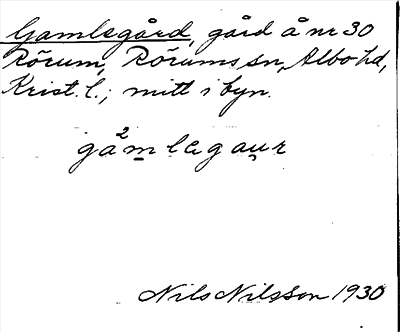 Gamlegård, gård å nr 30
Rörum, Rörums sn, Albo hd,
Krist. l.; mitt i byn.
gå²mlegaur
Nils Nilsson 1930